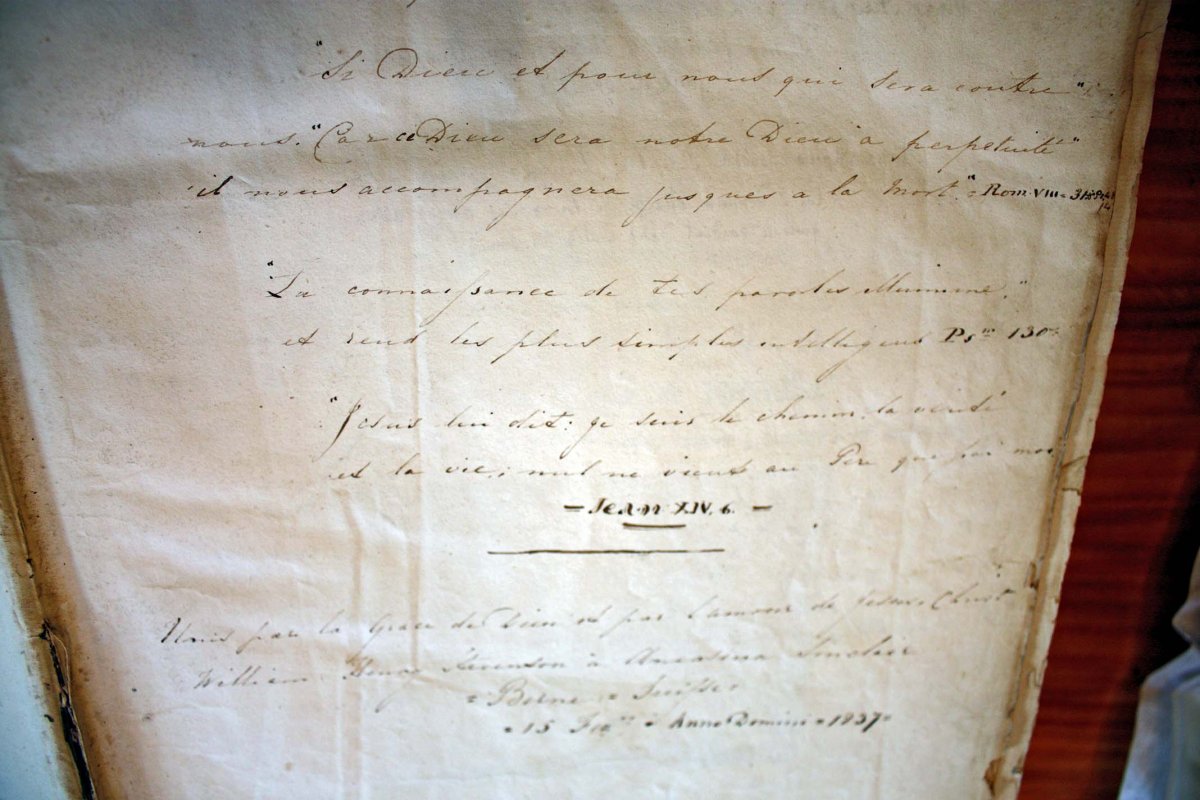 "Si Dieu et pour nous qui sera contre"
nous. "Car ce Dieu sera notre Dieu à perpetuité"
il nous accompagnera jusques a la mort." = Rom. VIII = 31
"La connaissance de tes paroles illumine,"
et rend les plus simples intelligens Ps.m 130
"Jesus lui dit: je suis le chemin, la verité
et la vie; nul ne vient au Père que par moi
= Jean XIV. 6. =
Unis par la Grace de Dieu et par l'amour de Jesus Christ
William Henry à
= Berne = Suisse
= 15 = Anno Domini = 1837 =